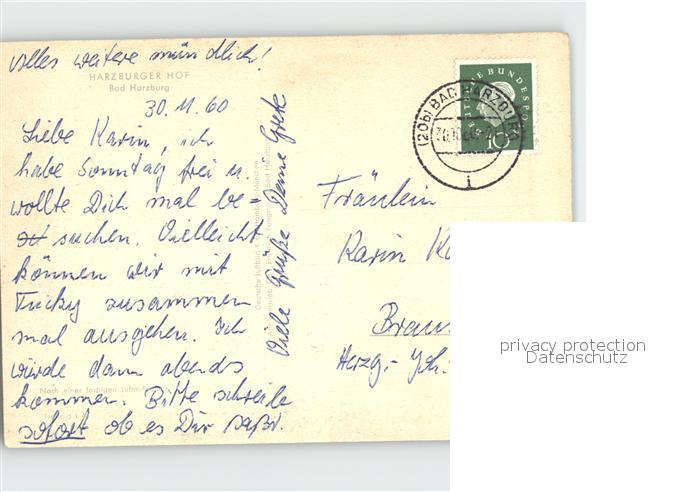 Alles weitere mündlich!
HARZBURGER HOF
Bad Harzburg
30.11.60
Liebe Karin, ich
habe Sonntag frei u.
wollte Dich mal be=
suchen. Vielleicht
können wir mit
Fucky zusammen
mal ausgehen. Ich
würde dann abends
kommen. Bitte schreibe
sofort ob es Dir paßt.
Viele Grüße Deine Grete
Nach einer farbigen Luftaufnahme
DEUTSCHE BUNDESPOST
10
(20b) BAD HARZBURG
i
Fräulein
Karin
Braun
Herzg.- Joh.
privacy protection
Datenschutz